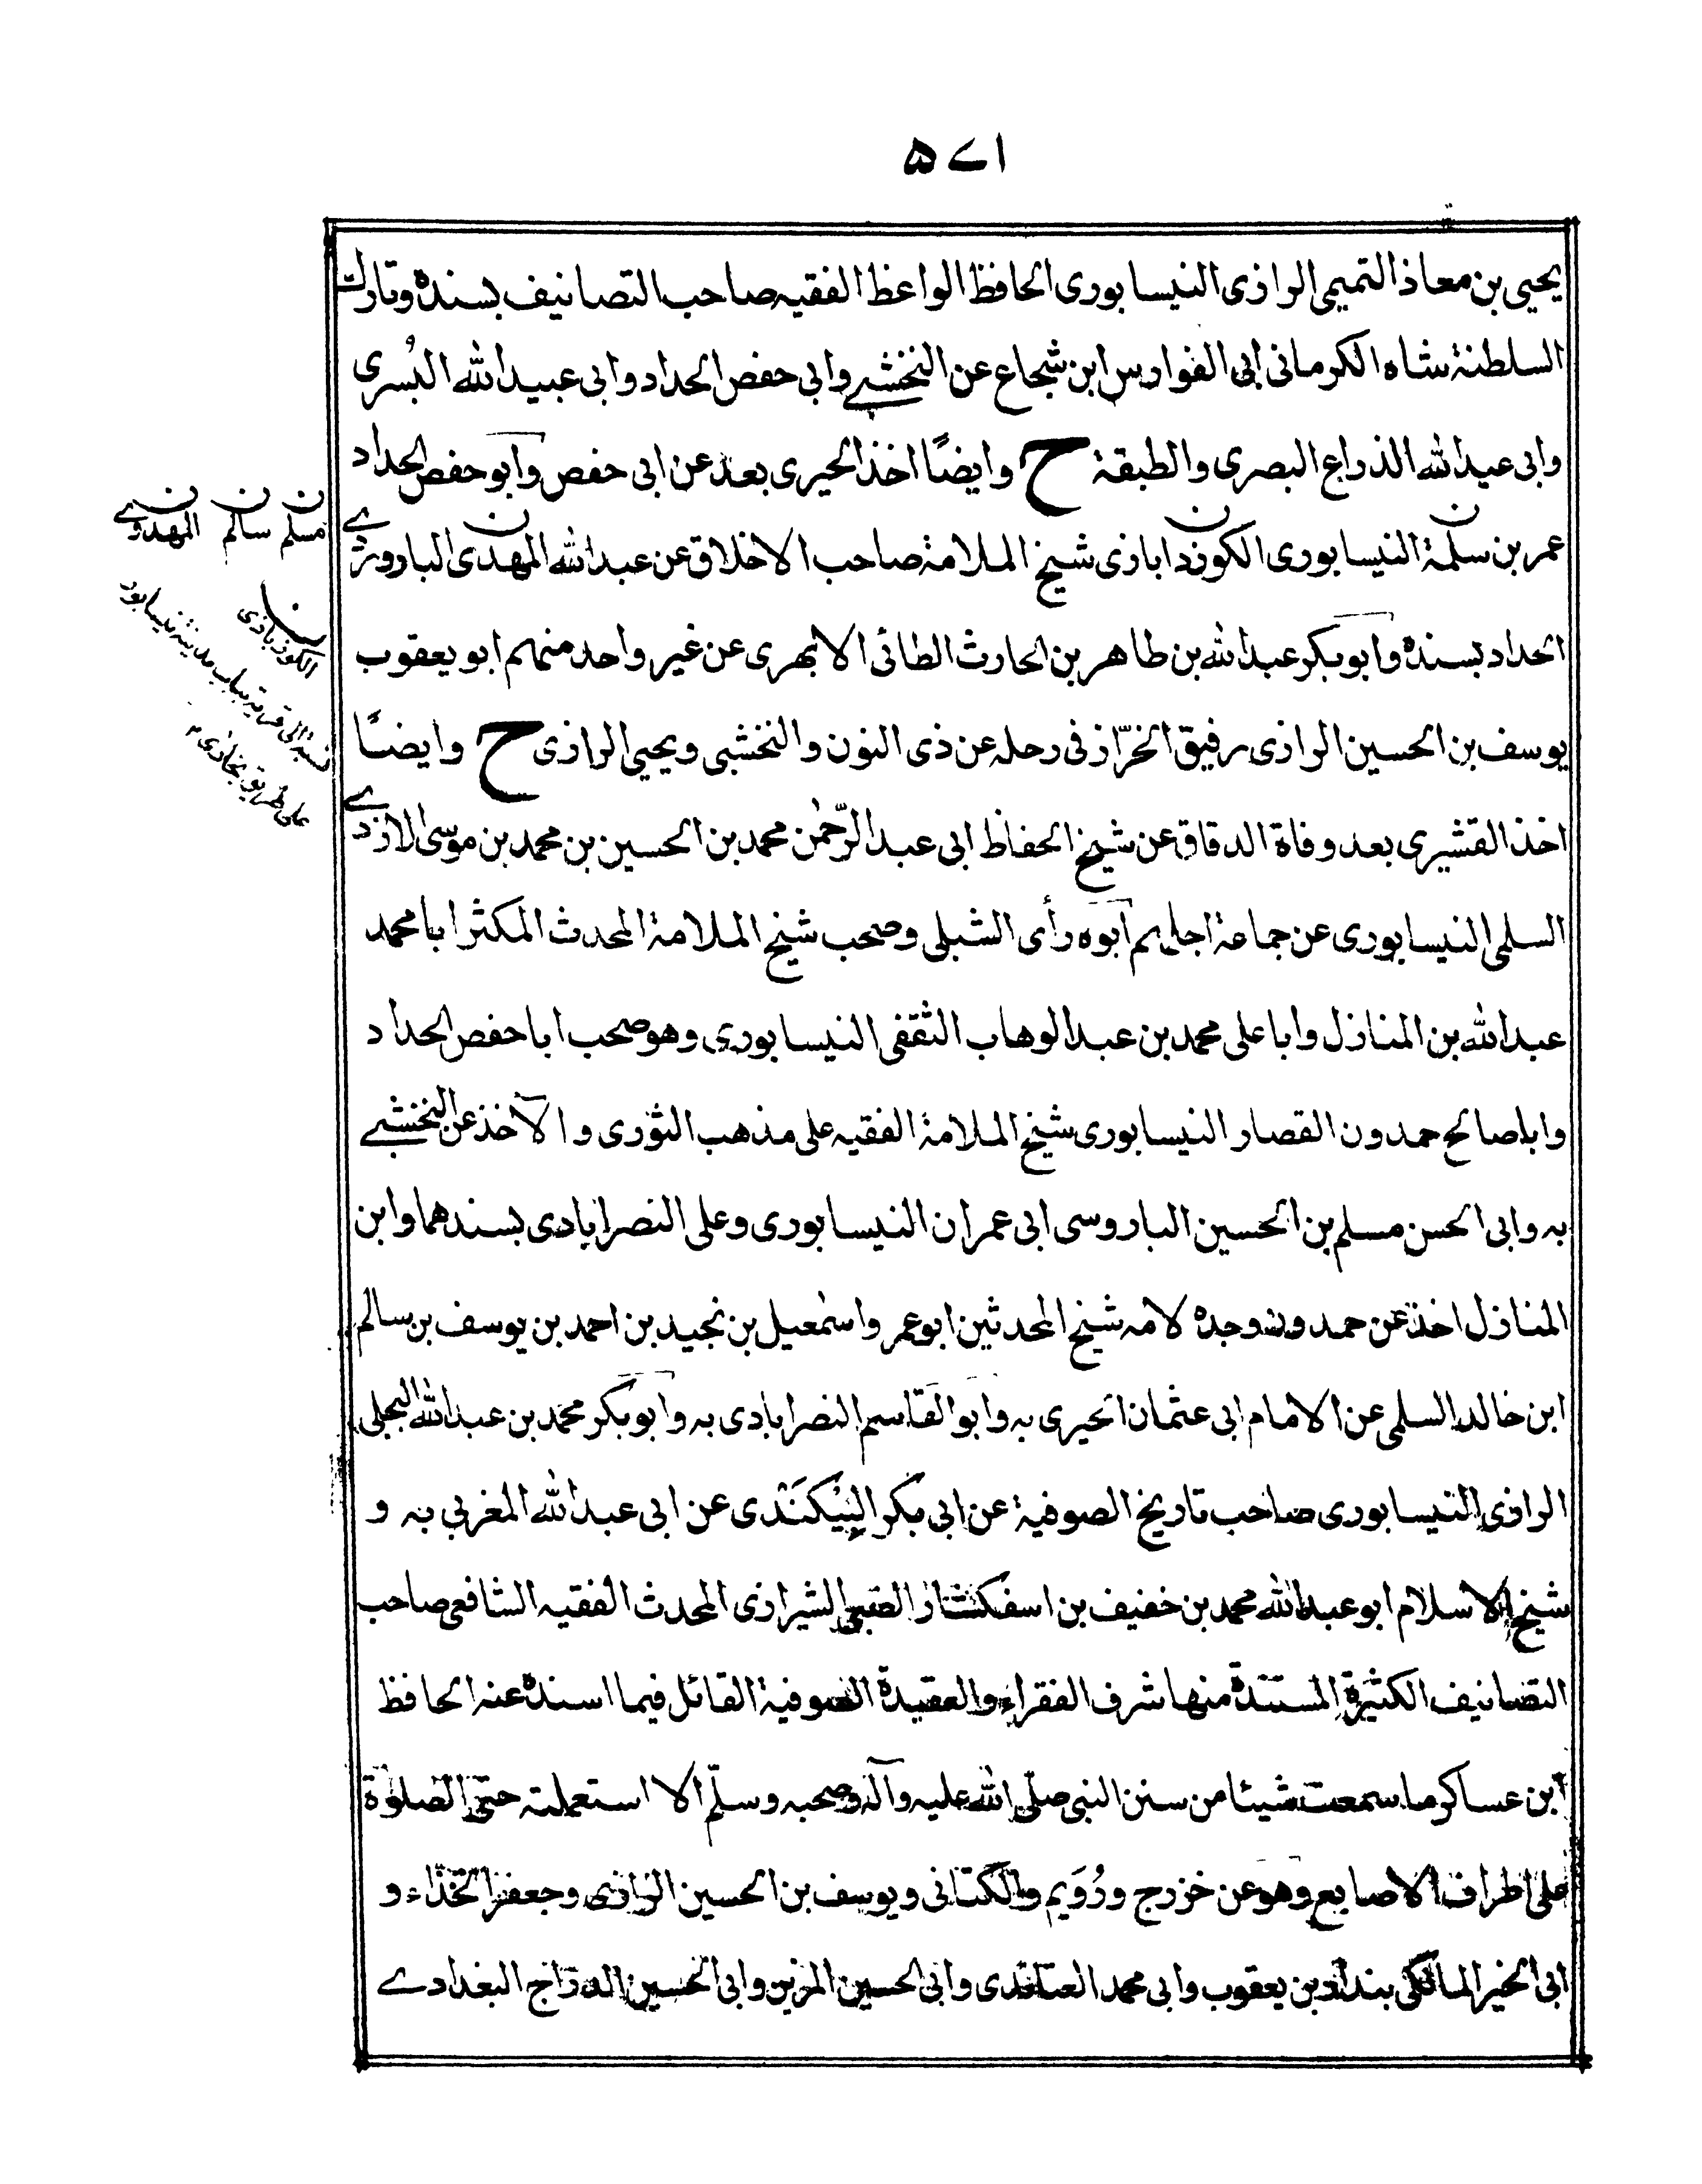 ۵۷۱
يحيى بن معاذ التميمى الرازى النيسابورى الحافظ الواعظ الفقيه صاحب التصانيف بسنده وتارك
السلطنة شاه الكرمانى ابى الفوارس ابن شجاع عن النخشبے وابى حفص الحداد وابى عبيد الله البُسرى
وابى عبد الله الذراع البصرى والطبقة ح وايضًا اخذ الحيرى بعد عن ابى حفص وابو حفص الحداد
عمر بن سلمة النيسابورى الكوزدابازى شيخ الملامة صاحب الاخلاق عن عبد الله المهدى الباوردے
الحداد بسنده وابو بكر عبد الله بن طاهر بن الحارث الطائى الابهرى عن غير واحد منهم ابو يعقوب
يوسف بن الحسين الرازى رفيق الخرّاز فى رحله عن ذى النون والنخشبى ويحيى الرازى ح وايضًا
اخذ القشيرى بعد وفاة الدقاق عن شيخ الحفاظ ابى عبد الرّحمٰن محمد بن الحسين بن محمد بن موسىٰ الازدے
السلمى النيسابورى عن جماعة اجلهم ابوه رأى الشبلى وصحب شيخ الملامة المحدث المكثر ابا محمد
عبد الله بن المنازل وابا على محمد بن عبد الوهاب الثقفى النيسابورى وهو صحب ابا حفص الحداد
وابا صالح حمدون القصار النيسابورى شيخ الملامة الفقيه على مذهب الثورى والآخذ عن النخشبے
به وابى الحسن مسلم بن الحسين الباروسى ابى عمران النيسابورى وعلى النصرابادى بسندهما وابن
المنازل اخذ عن حمدون وجده لامه شيخ المحدثين ابو عمرو اسمٰعيل بن نجيد بن احمد بن يوسف بن سالم
ابن خالد السلمى عن الامام ابى عثمان الحيرى به وابو القاسم النصرابادى به وابو بكر محمد بن عبد الله البجلى
الرازى النيسابورى صاحب تاريخ الصوفية عن ابى بكر البِيْكَنْدى عن ابى عبد الله المغربي به و
شيخ الاسلام ابو عبد الله محمد بن خفيف بن اسفكشار الضبى الشيرازى المحدث الفقيه الشافعى صاحب
التصانيف الكثيرة المستندة منها شرف الفقراء والعقيدة الصوفية القائل فيما اسنده عنه الحافظ
ابن عساكر ما سمعت شيئا من سنن النبى صلّى الله عليه وآله وصحبه وسلّم الا استعملته حتى الصلوٰة
على اطراف الاصابع وهو عن خزرج ورُوَيم والكتانى ويوسف بن الحسين الرازى وجعفر الحذّاء و
ابى الخير المالكى بندار بن يعقوب وابى محمد وابى الحسين المزين وابى الحسين الدراج البغدادے
مسلم سالم المهدوے
الكوزباذى
نسبة الى قرية بباب مدينة نيسابور
على طريق بخارى